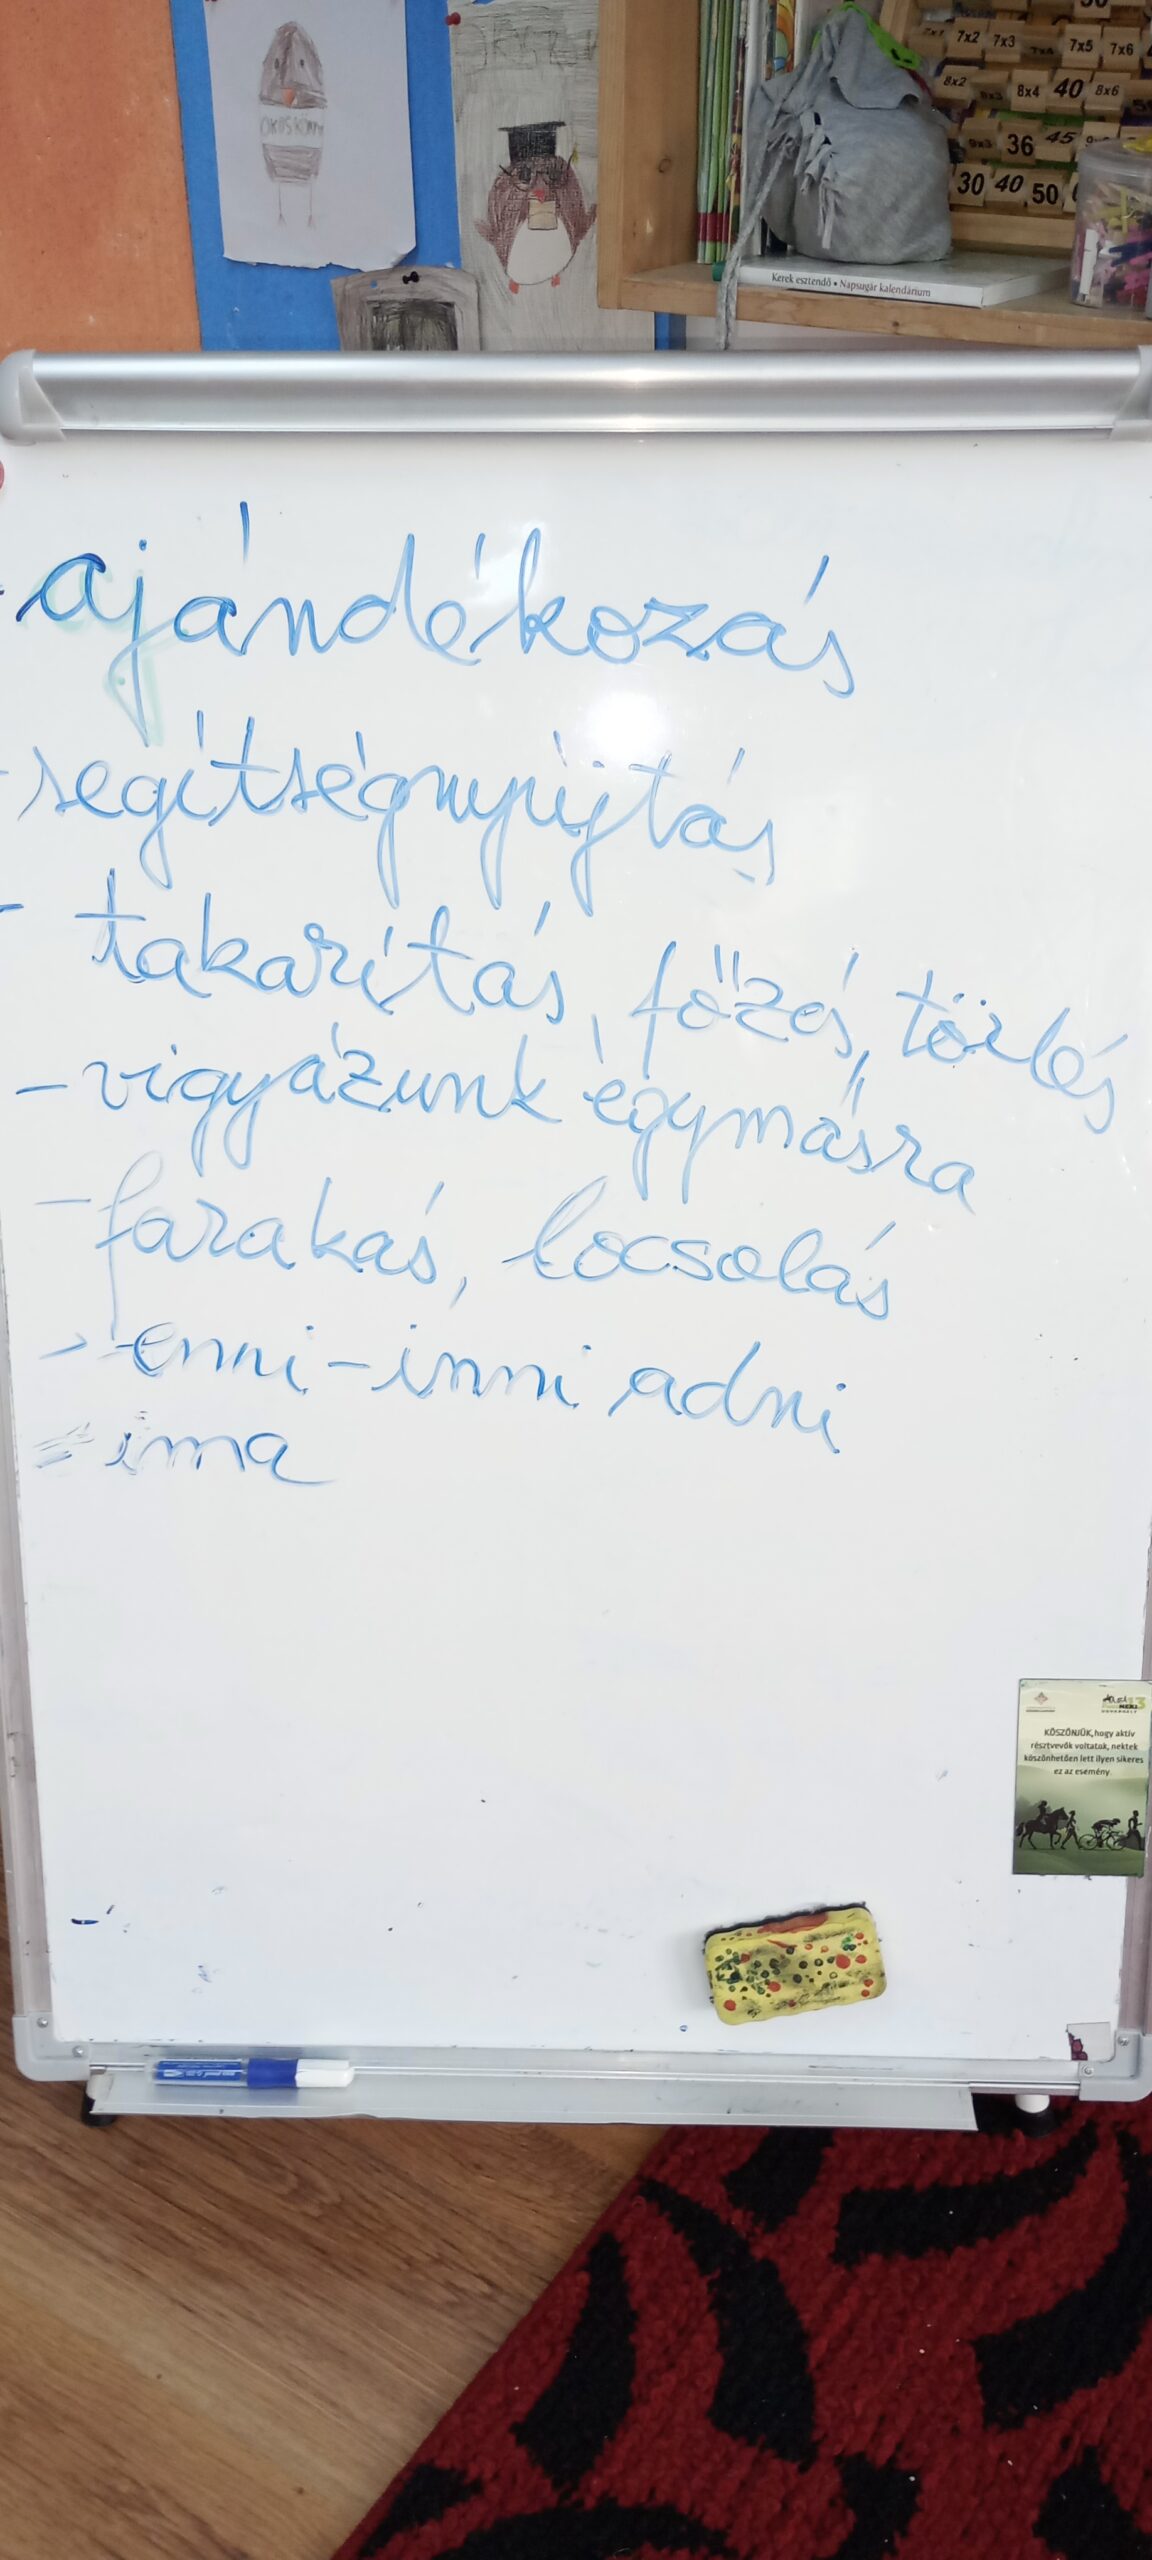 OKOSKÖNY
7x2 7x3 7x4 7x5 7x6
8x2 8x3 8x4 40 8x6
9x3 36 45
30 40 50
Kerek esztendő • Napsugár kalendárium
- ajándékozás
- segítségnyújtás
- takarítás, főzés, törlés
- vigyázunk egymásra
- farakás, locsolás
- enni-inni adni
- ima
KÖSZÖNJÜK, hogy aktív
résztvevők voltatok, nektek
köszönhetően lett ilyen sikeres
ez az esemény.